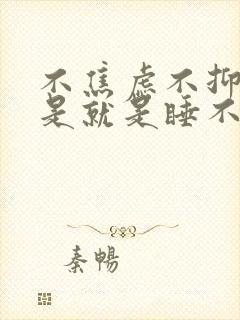 不焦虑不抑
是就是睡不
秦暢